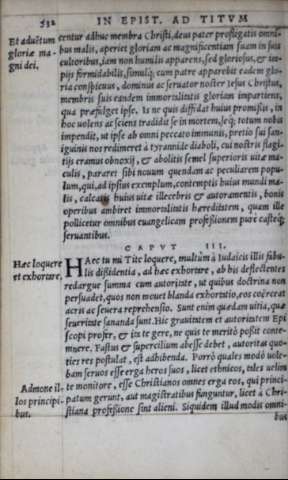 532 IN EPIST. AD TITVM
Et aduentum
gloriæ ma-
gni dei.
centur adhuc membra Christi, deus pater profligatis omni-
bus malis, aperiet gloriam ac magnificentiam suam in suis
cultoribus, iam non humilis apparens, sed gloriosus, & im-
pijs formidabilis, simulq; cum patre apparebit eadem glo-
ria conspicuus, dominus ac seruator noster Iesus Christus,
membris suis eandem immortalitatis gloriam impartiens,
qua præfulget ipse. Is ne quis diffidat huius promissis, in
hoc uolens ac sciens tradidit se in mortem, seq; totum nobis
impendit, ut ipse ab omni peccato immunis, pretio sui san-
guinis nos redimeret à tyrannide diaboli, cui nostris flagi-
tijs eramus obnoxij, & abolitis semel superioris uitæ ma-
culis, pararet sibi nouum quendam ac peculiarem popu-
lum, qui, ad ipsius exemplum, contemptis huius mundi ma-
lis, calcatis huius uitæ illecebris & autoramentis, bonis
operibus ambiret immortalitatis hæreditatem, quam ille
pollicetur omnibus euangelicam professionem pure casteq;
seruantibus.
CAPVT III.
Hæc loquere
et exhortare.
HAec tu mi Tite loquere, multum à Iudaicis illis fabu-
lis distidentia, ad hæc exhortare, ab his deflectentes
redargue summa cum autoritate, ut quibus doctrina non
persuadet, quos non mouet blanda exhortatio, eos coërceat
acris ac seuera reprehensio. Sunt enim quædam uitia, quæ
seueritate sananda sunt. Hic grauitatem et autoritatem Epi
scopi profer, & ita te gere, ne quis te meritò possit conte-
mnere. Fastus & supercilium abesse debet, autoritas quo-
ties res postulat, est adhibenda. Porrò quales modò uole-
bam seruos esse erga heros suos, licet ethnicos, tales uelim
Admone il-
los principi-
bus.
te monitore, esse Christianos omnes erga eos, qui princi-
patum gerunt, aut magistratibus funguntur, licet à Chri-
stiana professione sint alieni. Siquidem illud modis omni-
bus